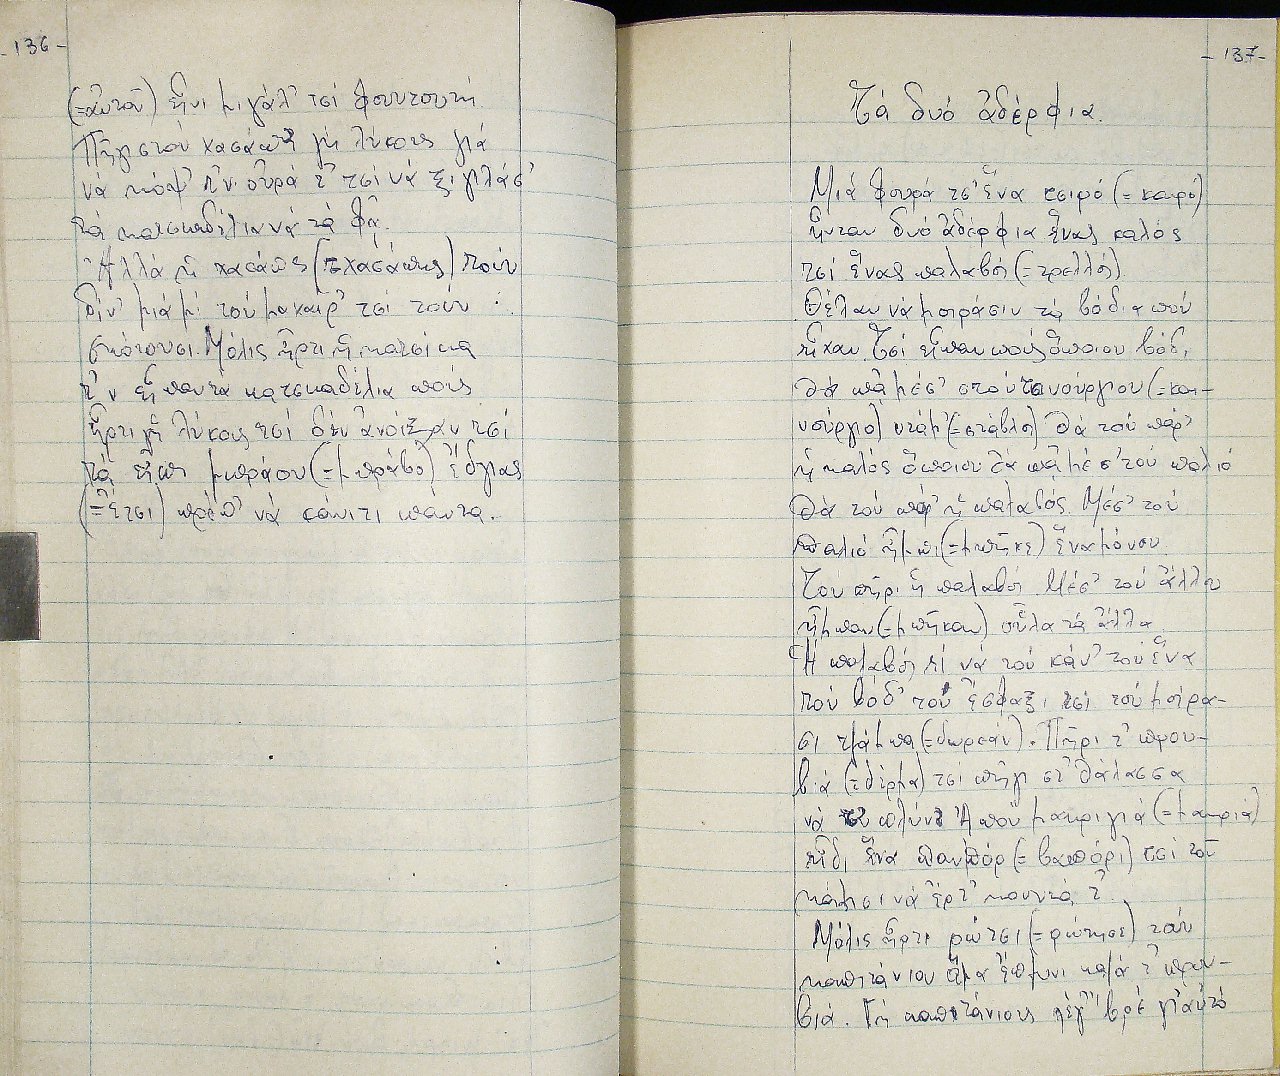 -136-
(=αὐτοῦ) εἶνι μιγάλ' τσί φουντουτή.
Πῆγι στού χασάπ' γή λύκους γιά
νά κόψ' τ'ν οὐρά τ' τσί νά ξιγιλάσ'
τά κατσκαδέλια νά τά φᾶ.
Ἀλλά ἡ χασάπς (=χασάπης) τούν
δίν' μιά μί τού μαχαίρ' τσί τούν
σκότουσι. Μόλις ἦρτι ἡ κατσίκα
τ'ν εἶπαν τα κατσκαδέλια πούς
ἦρτι γή λύκους τσί δέν ἀνοίξαν τσί
τά εἶπι μπράου (=μπράβο) ἔδγιας
(=ἔτσι) πρέπ' νά κάνιτι πάντα.
-137-
Τά δυό ἀδέρφια.
Μιά φουρά τσ' ἕνα τσιρό (=καιρό)
ἦνταν δυό ἀδέρφια ἕνας καλός
τσί ἕνας παλαβός (=τρελλός).
Θέλαν νά μοιράσιν τά βόδια πού
εἶχαν. Τσί εἶπαν πούς ὅποιου βόδ'
θά πᾶ μέσ' στού τσνούργιου (=και-
νούργιο) ντάμ' (=στάβλο) θά τού πάρ'
ἡ καλός ὅποιου θά πᾶ μέσ' τού παλιό
θά τού πάρ' ἡ παλαβός. Μέσ' τού
παλιό ἦμπι (=μπῆκε) ἕνα μόνου.
Τού πῆρι ἡ παλαβός. Μέσ' τού ἄλλου
ἦμπαν (=μπῆκαν) οὖλα τά ἄλλα.
Ἡ παλαβός τί νά τού κάν' τού ἕνα
τού βόδ' τού ἔσφαξι τσί τού μοίρα-
σι τζάμπα (=δωρεάν). Πῆρι τ' πρου-
βιά (=δέρμα) τσί πῆγι στ' θάλασσα
νά τού πλύν'. Ἀπού μακριγιά (=μακριά)
εἶδι ἕνα παπόρ (=βαπόρι) τσί τοῦ
κάλισι νά ἔρτ' κουντά τ'.
Μόλις ἦρτι ρώτσι (=ρώτησε) τούν
καπιτάνιου ἅμα ἔπλυνι καλά τ' πρου-
βιά. Γή καπιτάνιους λέγ' βρέ γι' αὐτό